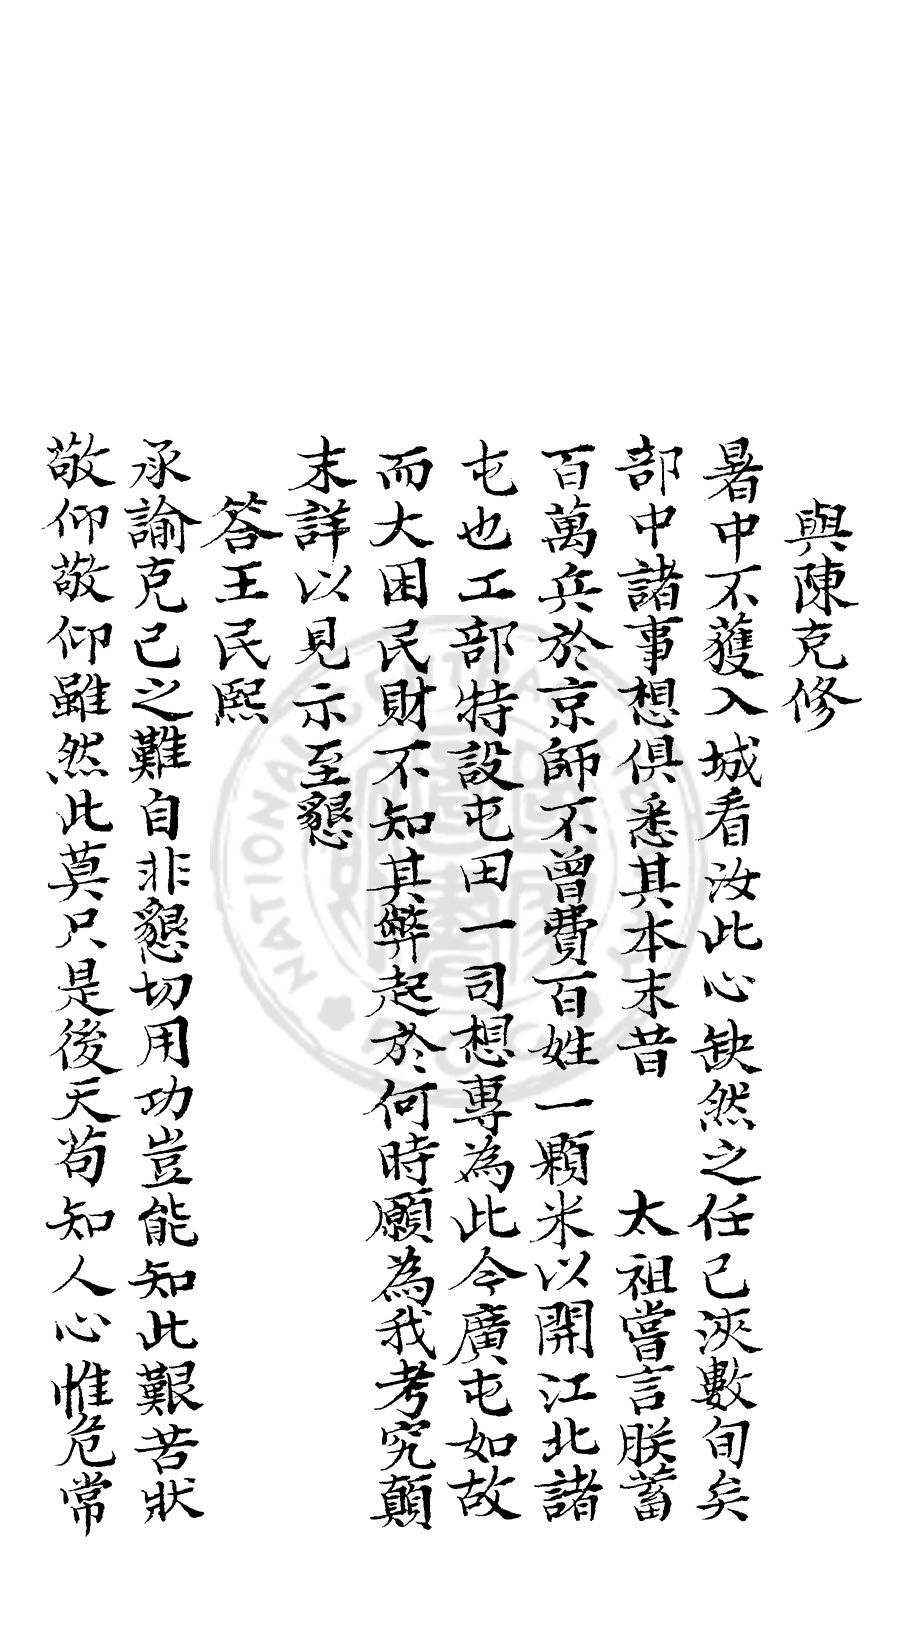 與陳克修
暑中不獲入城看汝此心缺然之任已浹數旬矣
部中諸事想俱悉其本末昔　太祖嘗言朕蓄
百萬兵於京師不曾費百姓一顆米以開江北諸
屯也工部特設屯田一司想專為此今廣屯如故
而大困民財不知其弊起於何時願為我考究顛
末詳以見示至懇
答王民熙
承諭克己之難自非懇切用功豈能知此艱苦狀
敬仰敬仰雖然此莫只是後天苟知人心惟危常
NATIONAL CENTRAL LIBRARY